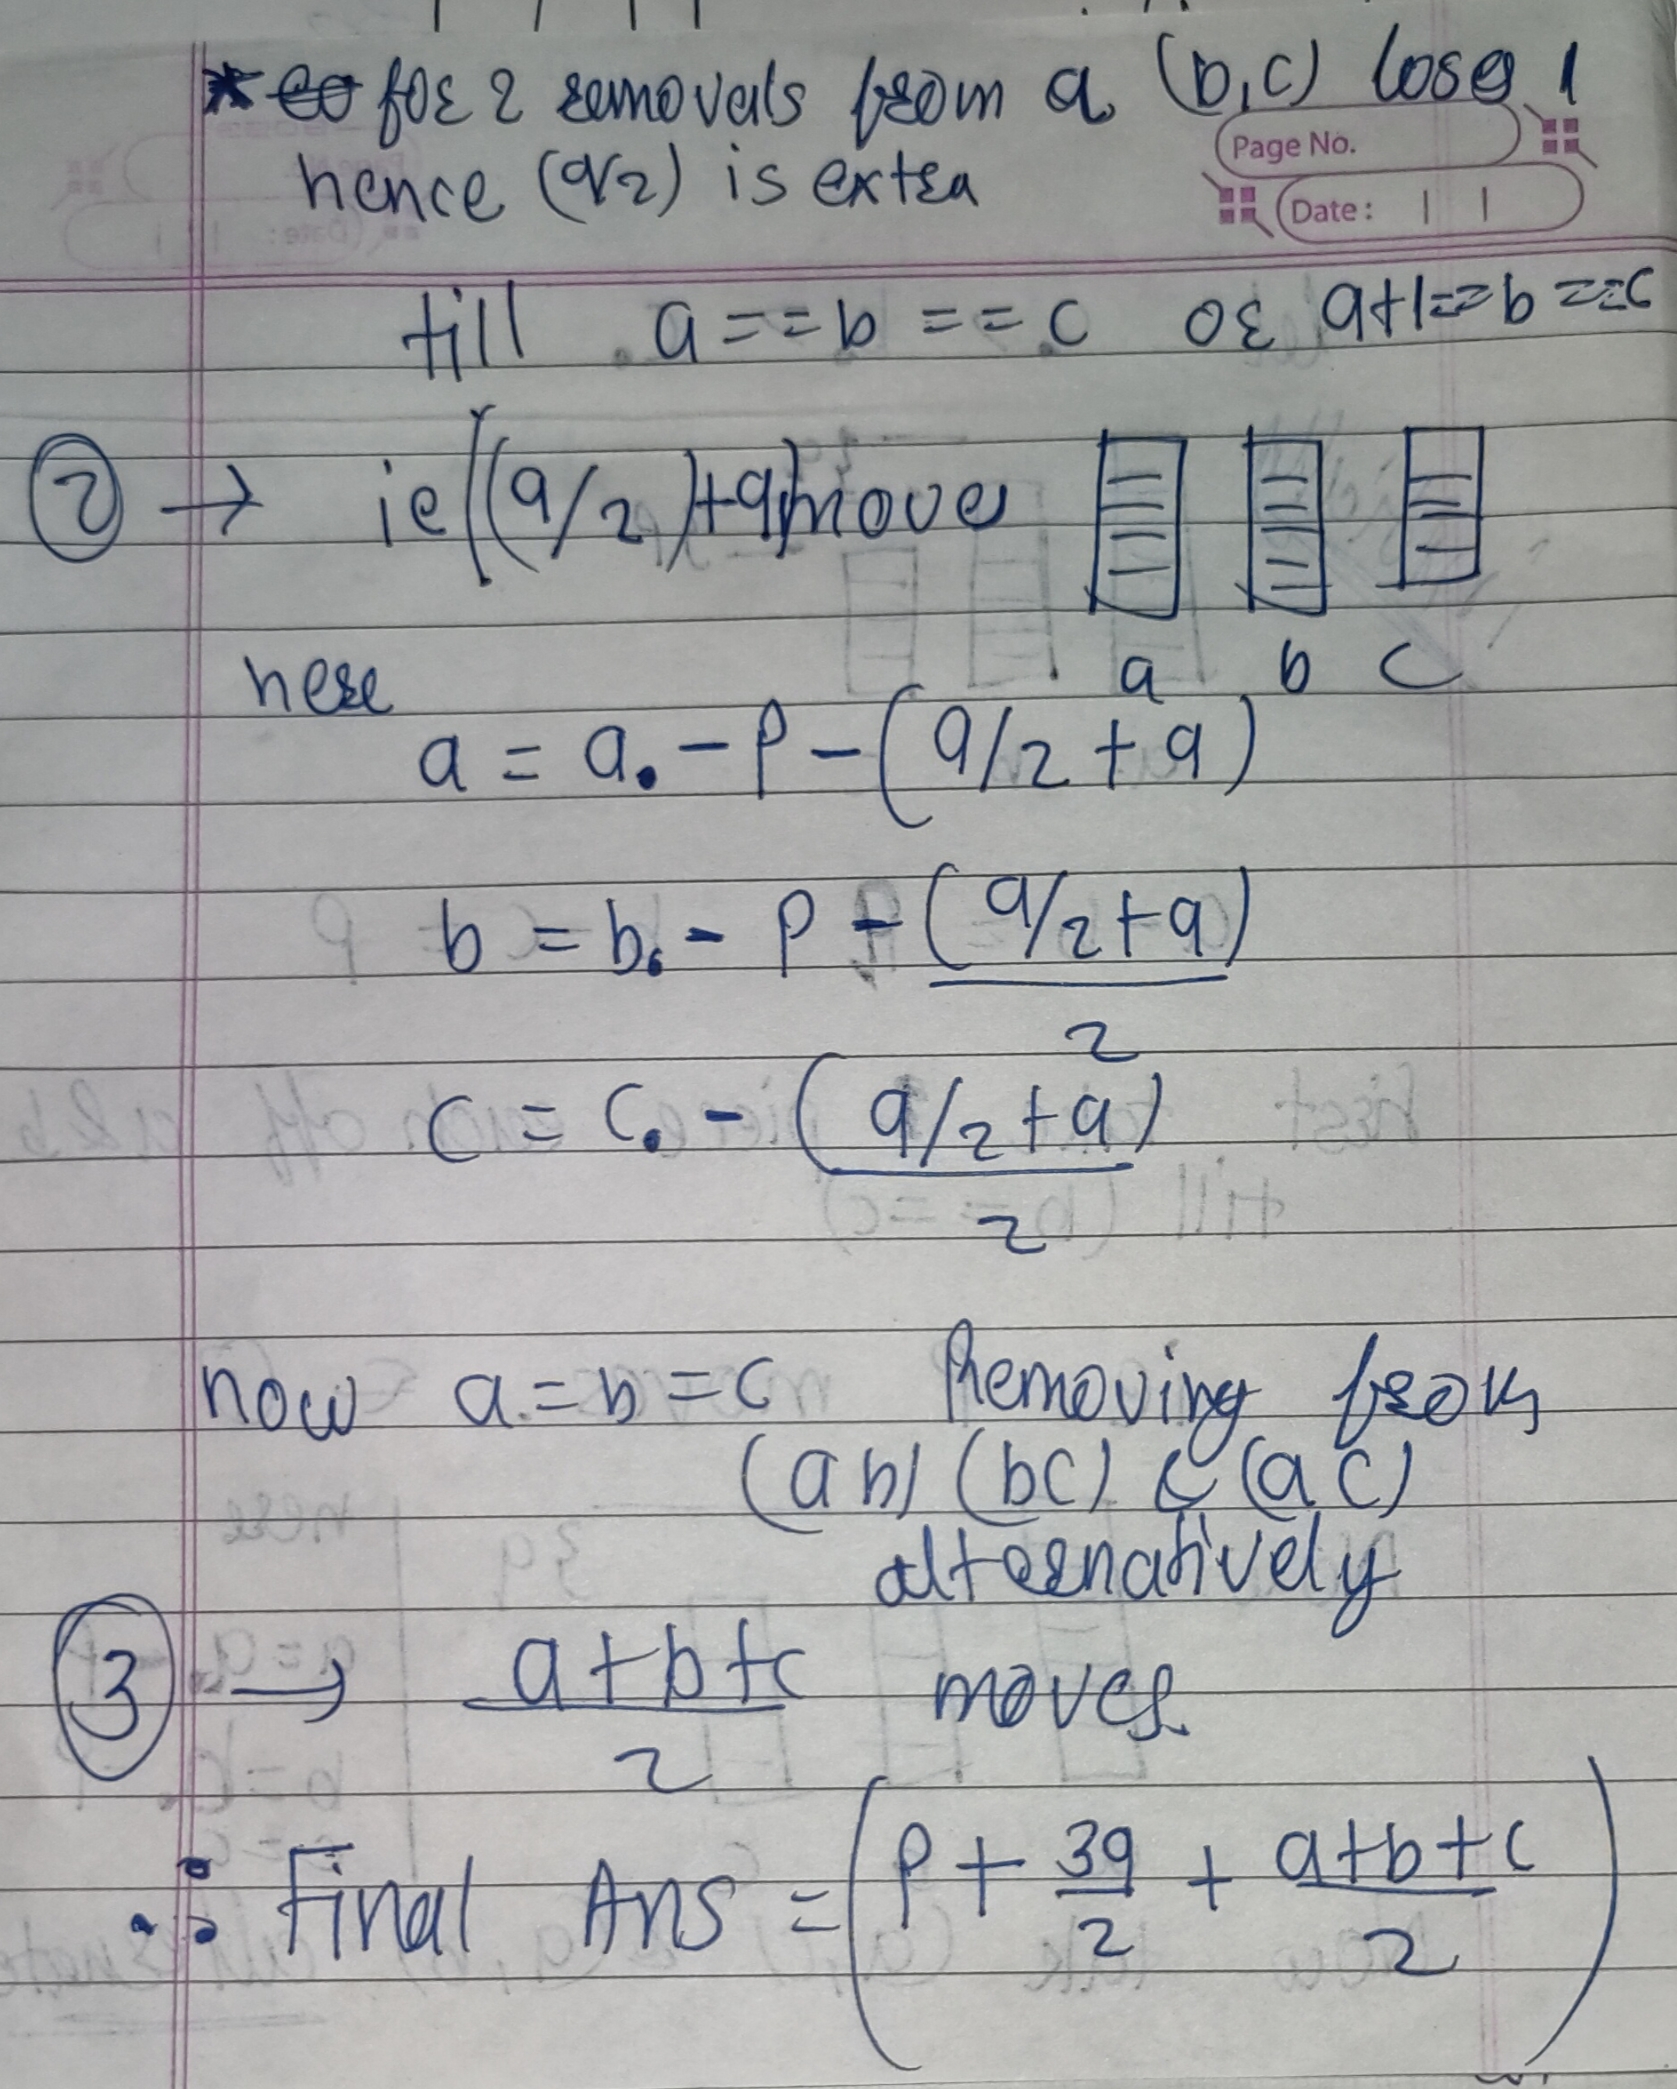 * for 2 removals from a (b,c) loses 1
Page No.
hence (q/2) is extra
Date: | |
till a==b==c or a+1==b==c
2 → ie ((q/2)+q) moves
a b c
here
a = a. - p - (q/2 + q)
b = b. - p - (q/2+q)
2
c = c. - (q/2+q)
2
now a=b=c Removing from
(ab) (bc) & (ac)
alternatively
3 → a+b+c moves.
2
∴ Final Ans = (p + 3q + a+b+c)
2 2